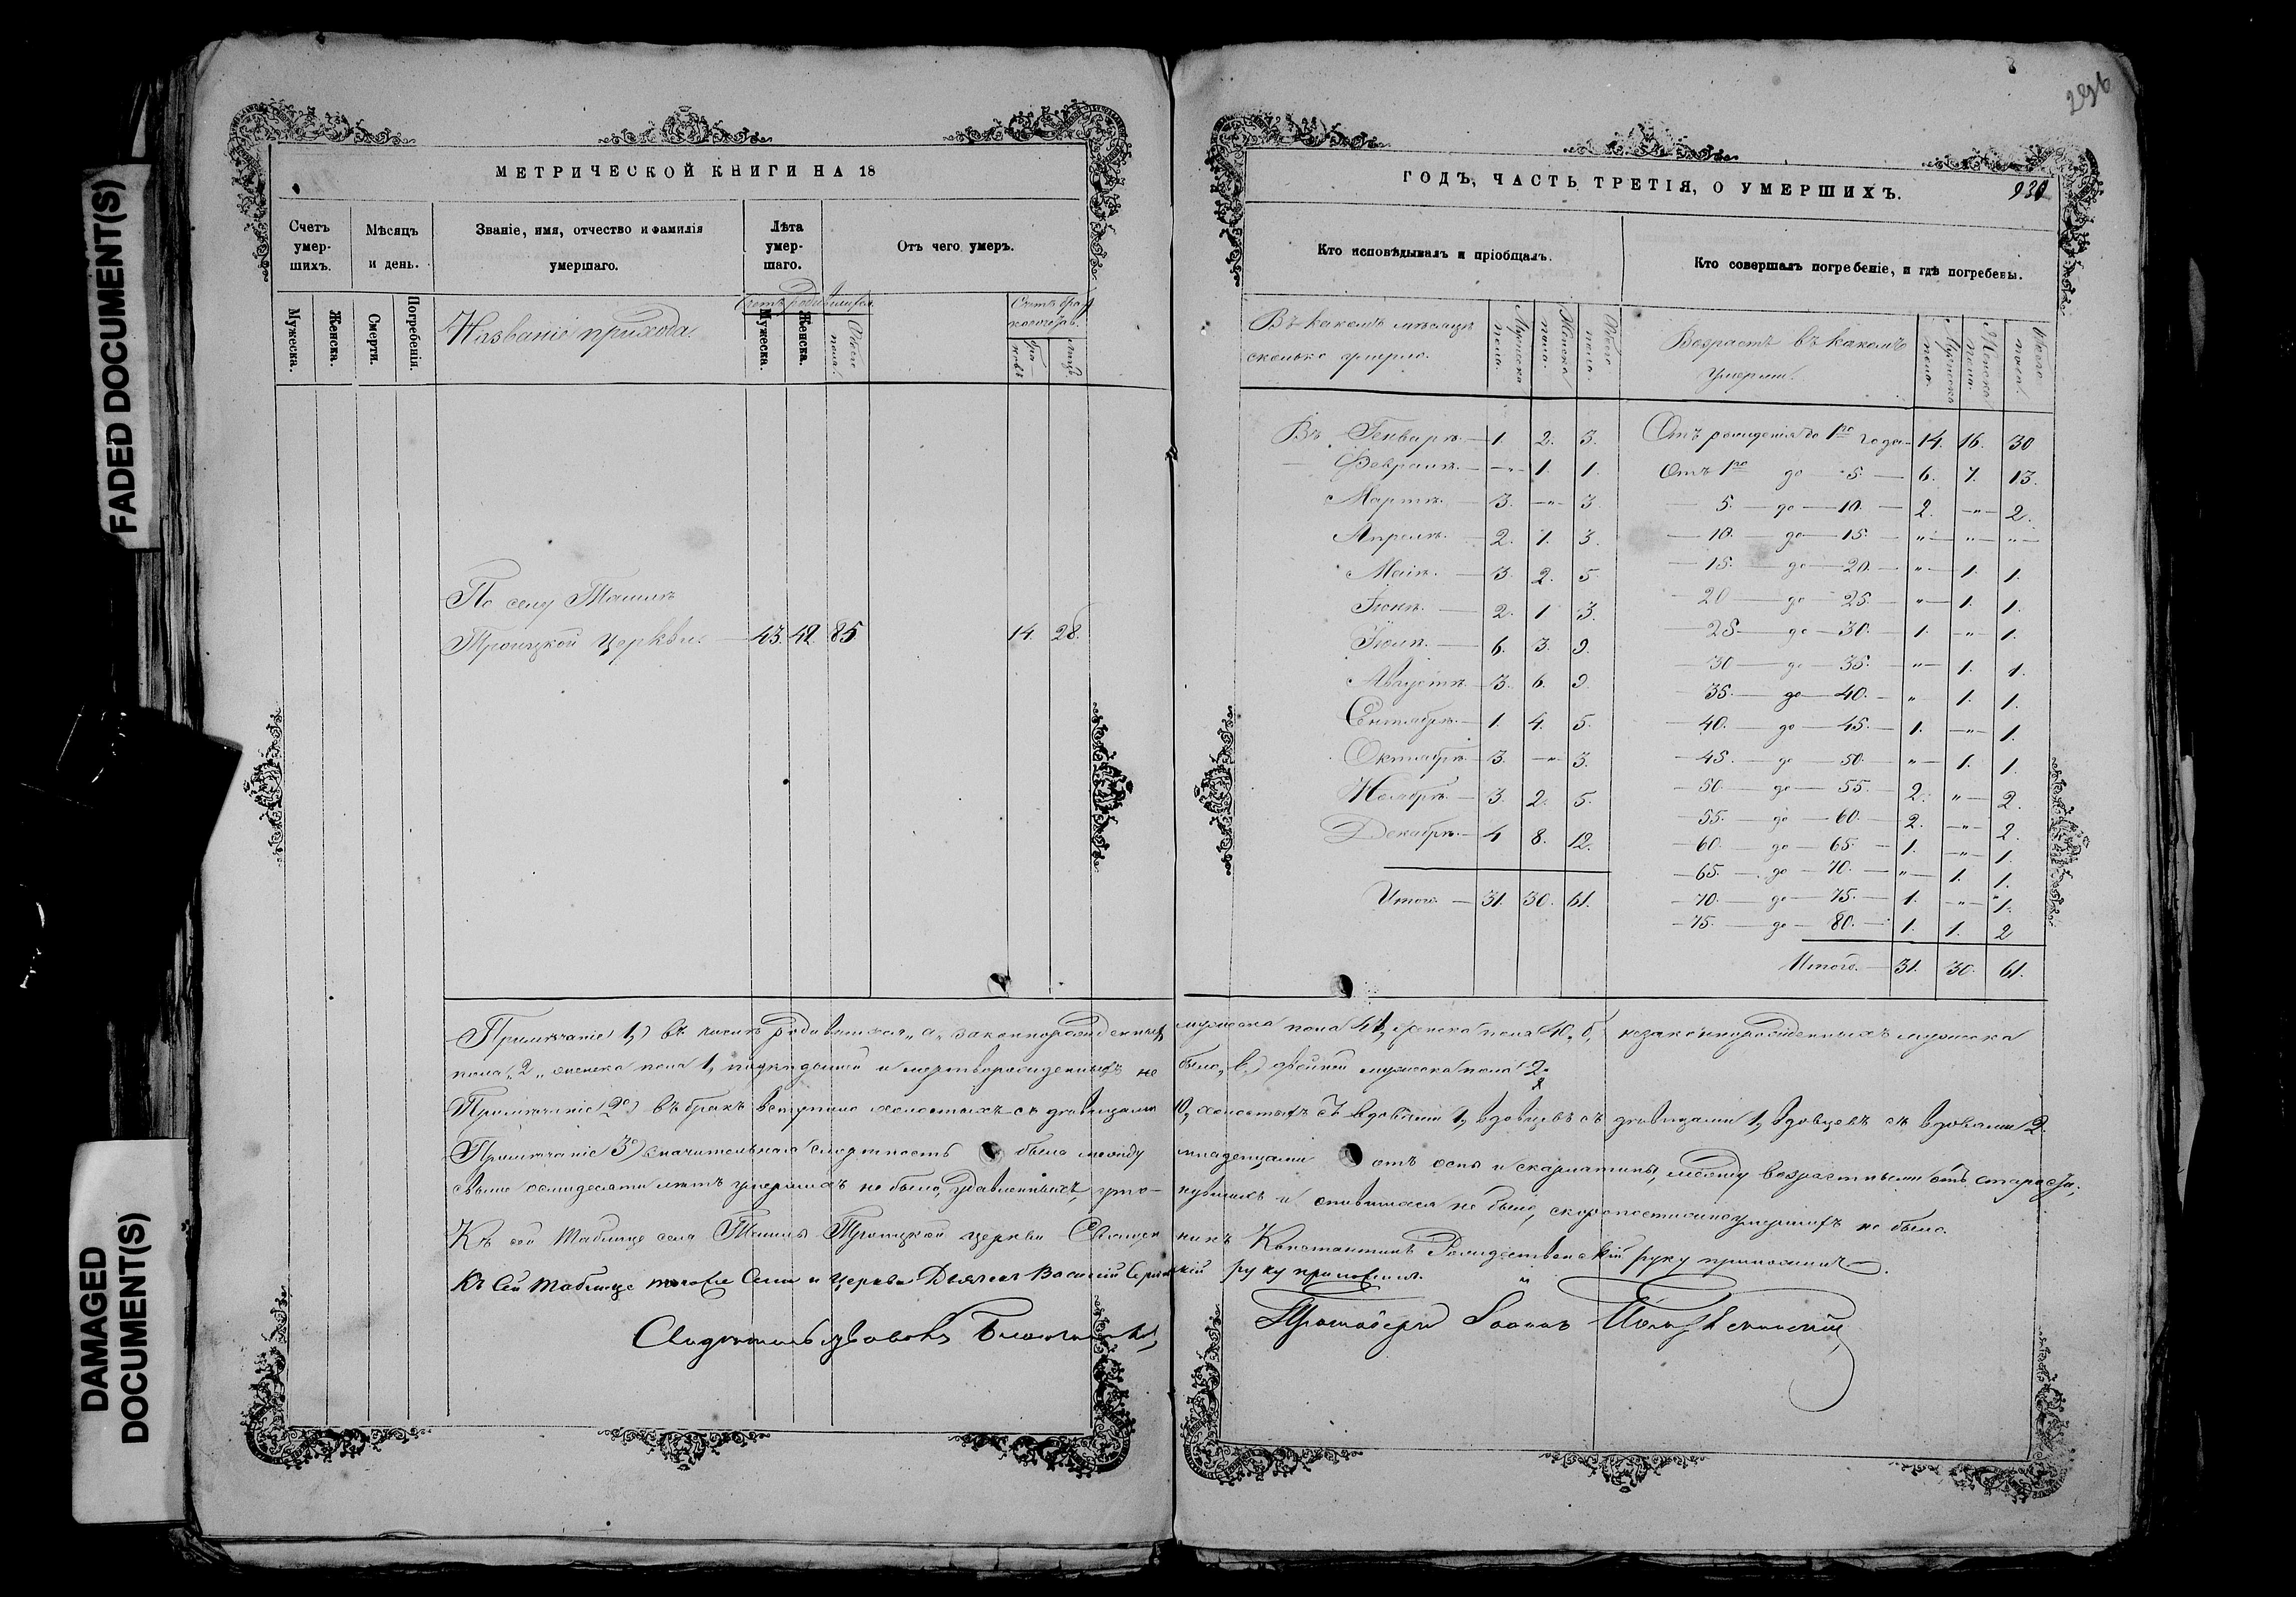 FADED DOCUMENT(S)
DAMAGED DOCUMENT(S)
МЕТРИЧЕСКОЙ КНИГИ НА 18
Счетъ умер-шихъ.
Мѣсяцъ и день.
Званіе, имя, отчество и фамилія умершаго.
Лѣта умер-шаго.
Отъ чего умеръ.
Мужеска.
Женска.
Смерти.
Погребенія.
Названіе прихода.
Счетъ родившихся
Мужеска.
Женска.
Обоего пола.
Счетъ бра-
косочетав.
бра-ковъ
лицъ.
По селу Ташлѣ
Троицкой церкви. — 43. 42. 85. 14. 28.
ГОДЪ, ЧАСТЬ ТРЕТІЯ, О УМЕРШИХЪ.
Кто исповѣдывалъ и пріобщалъ.
Кто совершалъ погребеніе, и гдѣ погребены.
Въ какомъ мѣсяцѣ
сколько умерло.
Мужеска пола.
Женска пола.
Обоего пола.
Въ Генварѣ. — 1. 2. 3.
Февралѣ. — „ — 1. 1.
Мартѣ. — 3. — „ — 3.
Апрелѣ. — 2. 1. 3.
Маіѣ. — 3. 2. 5.
Іюнѣ. — 2. 1 3.
Іюлѣ. — 6. 3. 9.
Августѣ. — 3. 6. 9.
Сентябрѣ. — 1. 4. 5.
Октябрѣ — 3. — „ — 3.
Ноябрѣ. — 3. 2. 5.
Декабрѣ. — 4 8. 12.
Итого. — 31. 30. 61.
Возрастъ въ какомъ
умерли.
Мужеска пола.
Женска пола.
Обоего пола.
Отъ рожденія до 1го года — 14. 16. 30
Отъ 1го до 5. — 6. 7. 13.
5. — до — 10. — 2. — „ — 2.
10. — до — 15. — „ — „ — „ —
15. — до — 20. — „ — 1. 1.
20 — до — 25. — „ — 1. 1.
25 — до — 30. — 1. — „ — 1.
30 — до — 35. — „ — 1. 1.
35. — до — 40. — „ 1. 1.
40. — до — 45. — 1. — „ — 1.
45. — до — 50. — „ — 1. 1.
50. — до — 55. — 2. „ — 2.
55. — до — 60. — 2. — „ — 2.
60. — до — 65. — 1. — „ — 1.
65. — до — 70. — „ — 1. 1.
70. — до — 75. — 1. — „ — 1.
75. — до — 80. — 1. 1. 2
Итого. — 31. 30. 61.
Примѣчаніе 1,) въ числѣ родившихся „а„ законнорожденныхъ мужеска пола 41, женска пола 40, б, незаконнорожденныхъ мужеска
пола „2„ женска пола 1, подкидышей и мертворожденныхъ не было, в,) двойни мужеска пола 2.
Примѣчаніе 2е) въ бракъ вступило холостыхъ съ дѣвицами 10, холостыхъ съ вдовами 1, вдовцевъ съ дѣвицами 1, вдовцевъ съ вдовами 2.
Примѣчаніе 3е) значительная смертность была между младенцами отъ оспы и скарлатины, между возрастными отъ старости;
свыше осмидесяти лѣтъ умершихъ не было, удавленныхъ, уто-нувшихъ и опившихся не было, скоропостижноумершихъ не было.
Къ сей таблице села Ташлы Троицкой церкви Священ никъ Константинъ Рождественскій руку приложилъ.
Къ сей таблице тогоже Села и церкви Дьячекъ Василій руку приложилъ.